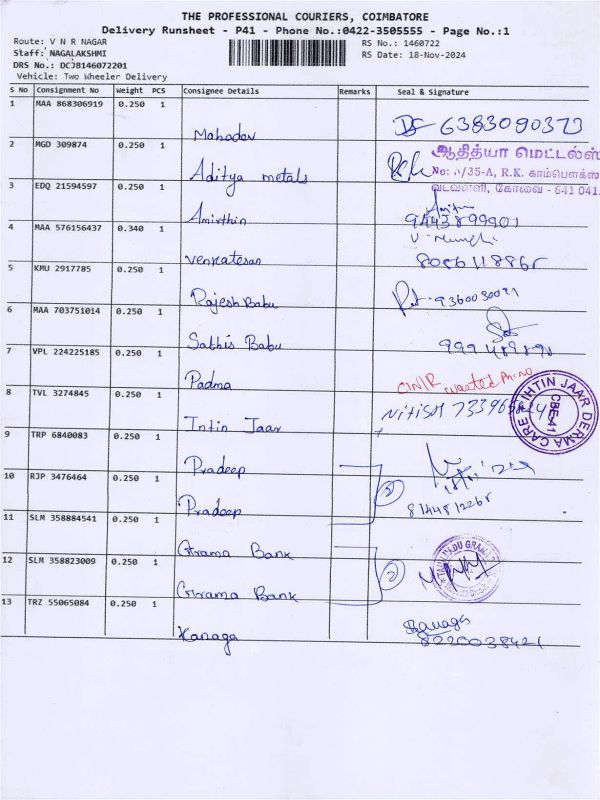 THE PROFESSIONAL COURIERS, COIMBATORE
Delivery Runsheet - P41 - Phone No.:0422-3505555 - Page No.:1
Route: V N R NAGAR
Staff: NAGALAKSHMI
DRS No.: DCJ8146072201
Vehicle: Two Wheeler Delivery
RS No.: 1460722
RS Date: 18-Nov-2024
S No Consignment No Weight PCS Consignee Details Remarks Seal & Signature
1 MAA 868306919 0.250 1
Mahadev 6383090373
2 MGD 309874 0.250 1
ஆதித்யா மெட்டல்ஸ்
Aditya metals No: /35-A, R.K. காம்பௌக்ஸ்
வடவள்ளி, கோவை - 641 041.
3 EDQ 21594597 0.250 1
Amirthin 9443899901
4 MAA 576156437 0.340 1
Venkatesan
5 KMU 2917785 0.250 1
Rajesh Babu
6 MAA 703751014 0.250 1
Sathis Babu
7 VPL 224225185 0.250 1
Padma CN/R wanted Ph.no
8 TVL 3274845 0.250 1
Nitish
Intin Jaar
IHTIN JAAR DERMA CARE
CBE-41
9 TRP 6840083 0.250 1
Pradeep
10 RJP 3476464 0.250 1
Pradeep 2
11 SLM 358884541 0.250 1
Grama Bank
12 SLM 358823009 0.250 1
Grama Bank 2
13 TRZ 55065084 0.250 1
Kanaga Kanaga
8220038421